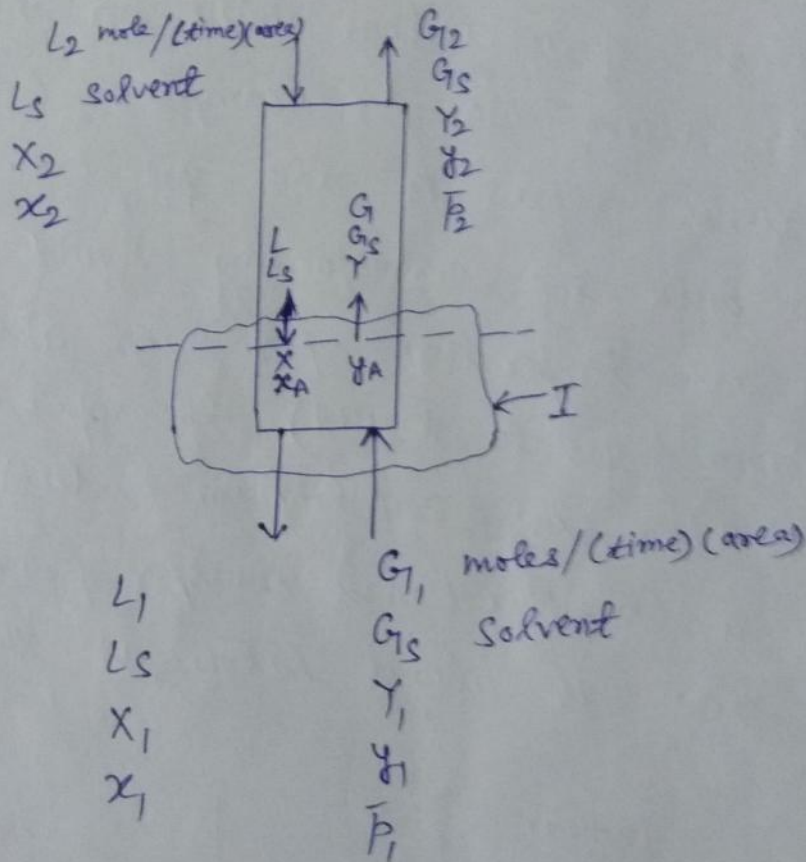 L2 mole/(time)(area)
Ls solvent
X2
x2
G2
Gs
Y2
y2
p̄2
L
Ls
G
Gs
Y
X
xA
yA
I
L1
Ls
X1
x1
G1 moles/(time)(area)
Gs solvent
Y1
y1
p̄1